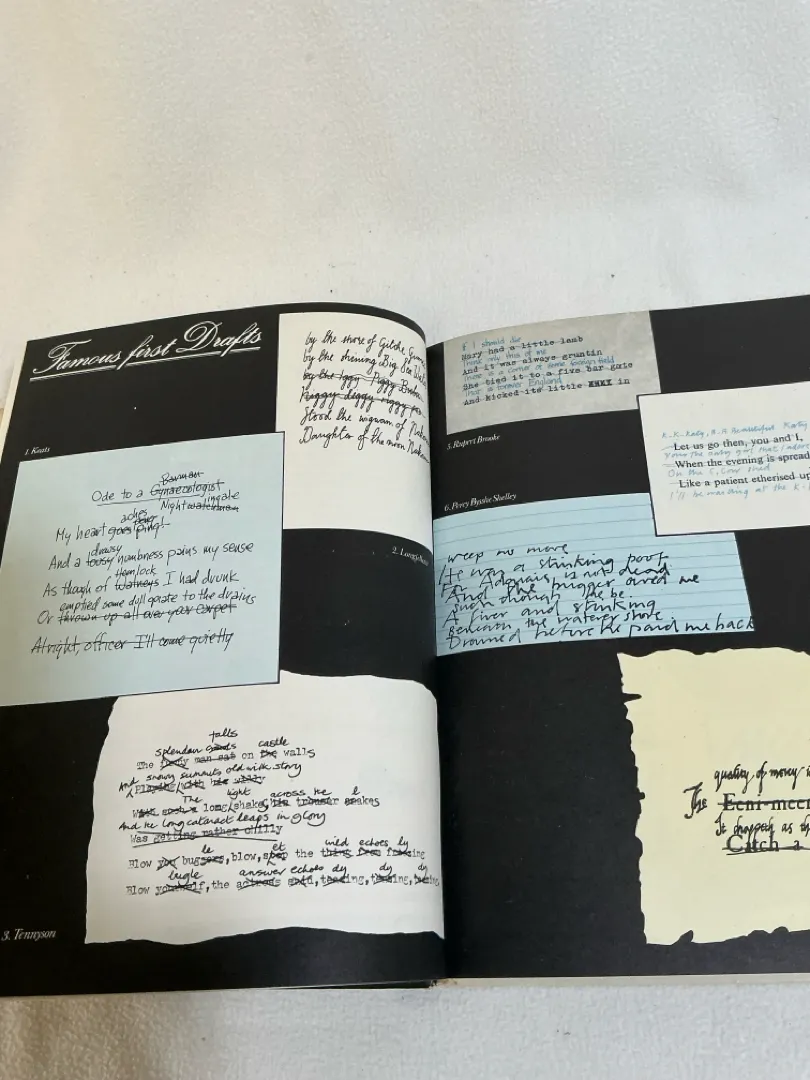 Famous first Drafts
1. Keats
Barman
Ode to a Gynaecologist
Nightwatchman ingale
aches
My heart goes ping!
drowsy
And a lousy numbness pains my sense
Hemlock
As though of Watneys I had drunk
emptied some dull opiate to the drains
Or thrown up all over your carpet
Alright, officer I'll come quietly
by the shore of Gitche
by the shining Big Sea
by the Iggy Piggy
Stood the wigwam of
Daughter of the moon
2.
falls
splendour castle
The man eat on the walls
And snowy summits old with story
with his
The light across the l
long shake
And the long cataract leaps in glory
Was getting rather chilly
le et wild echoes ly
Blow you buggers, blow, the
bugle answer echoes dy dy dy
Blow yourself, the
3. Tennyson
If I should die
Mary had a little lamb
Think only this of me
And it was always gruntin
There is a corner of some foreign field
She tied it to a five bar gate
That is forever England
And kicked its little in
5. Rupert Brooke
K-K-Katy, Beautiful Katy
Let us go then, you and I,
You're the only girl that I adore
When the evening is spread
On the
Like a patient etherised
I'll be waiting at the K-
6. Percy Bysshe Shelley
weep no more
He was a stinking poof
For Adonais is not dead
And the bugger owed me
Sunk though he be
A fiver and stinking
Beneath the watery shore
Drowned before he paid me back
quality of money
The Eeni-meen
It droppeth as th
Catch a